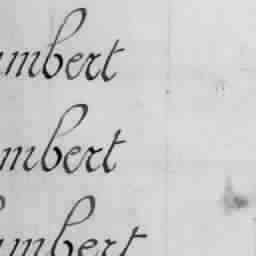 mbert
mbert
mbert